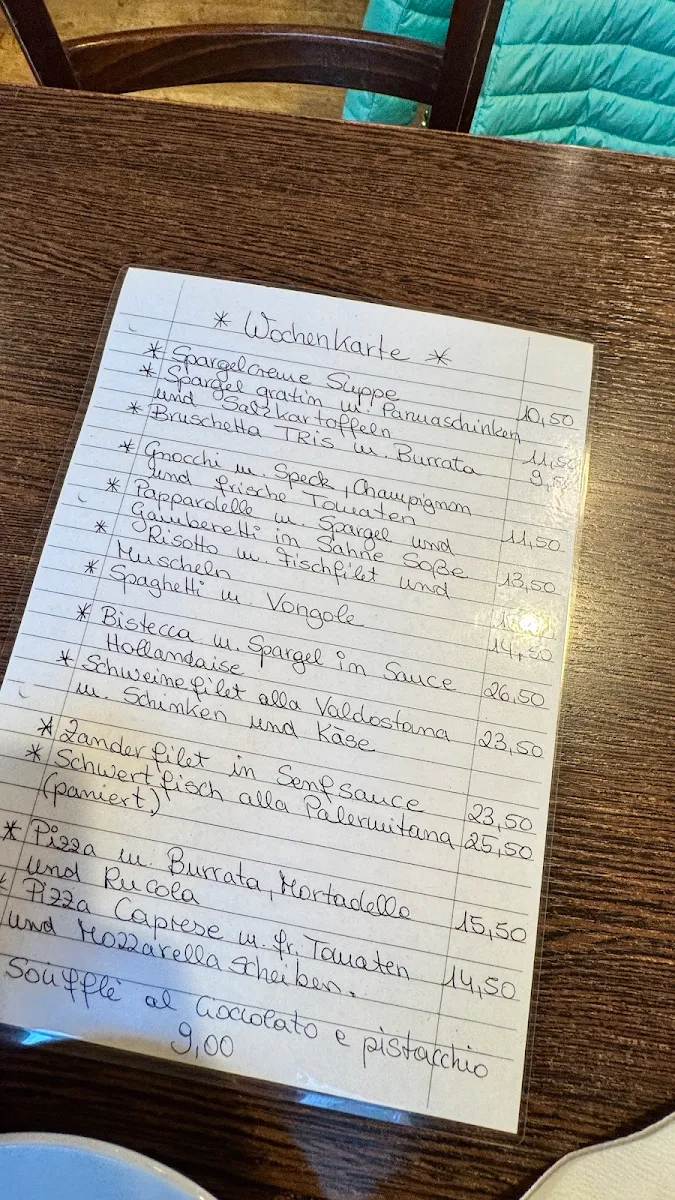 * Wochenkarte *
* Spargelcreme Suppe 10,50
* Spargel gratin m. Parmaschinken
und Salzkartoffeln 11,50
* Bruschetta TRIS m. Burrata
* Gnocchi m. Speck, Champignon
und frische Tomaten 11,50
* Pappardelle m. Spargel und
Gamberetti in Sahne Soße 13,50
* Risotto m. Fischfilet und
Muscheln
* Spaghetti m. Vongole 14,50
* Bistecca m. Spargel in Sauce
Hollandaise 26,50
* Schweinefilet alla Valdostana
m. Schinken und Käse 23,50
* Zanderfilet in Senfsauce 23,50
* Schwertfisch alla Palermitana 25,50
(paniert)
* Pizza m. Burrata, Mortadella
und Rucola 15,50
* Pizza Caprese m. fr. Tomaten
und Mozzarella scheiben. 14,50
Soufflè al Cioccolato e pistacchio
9,00